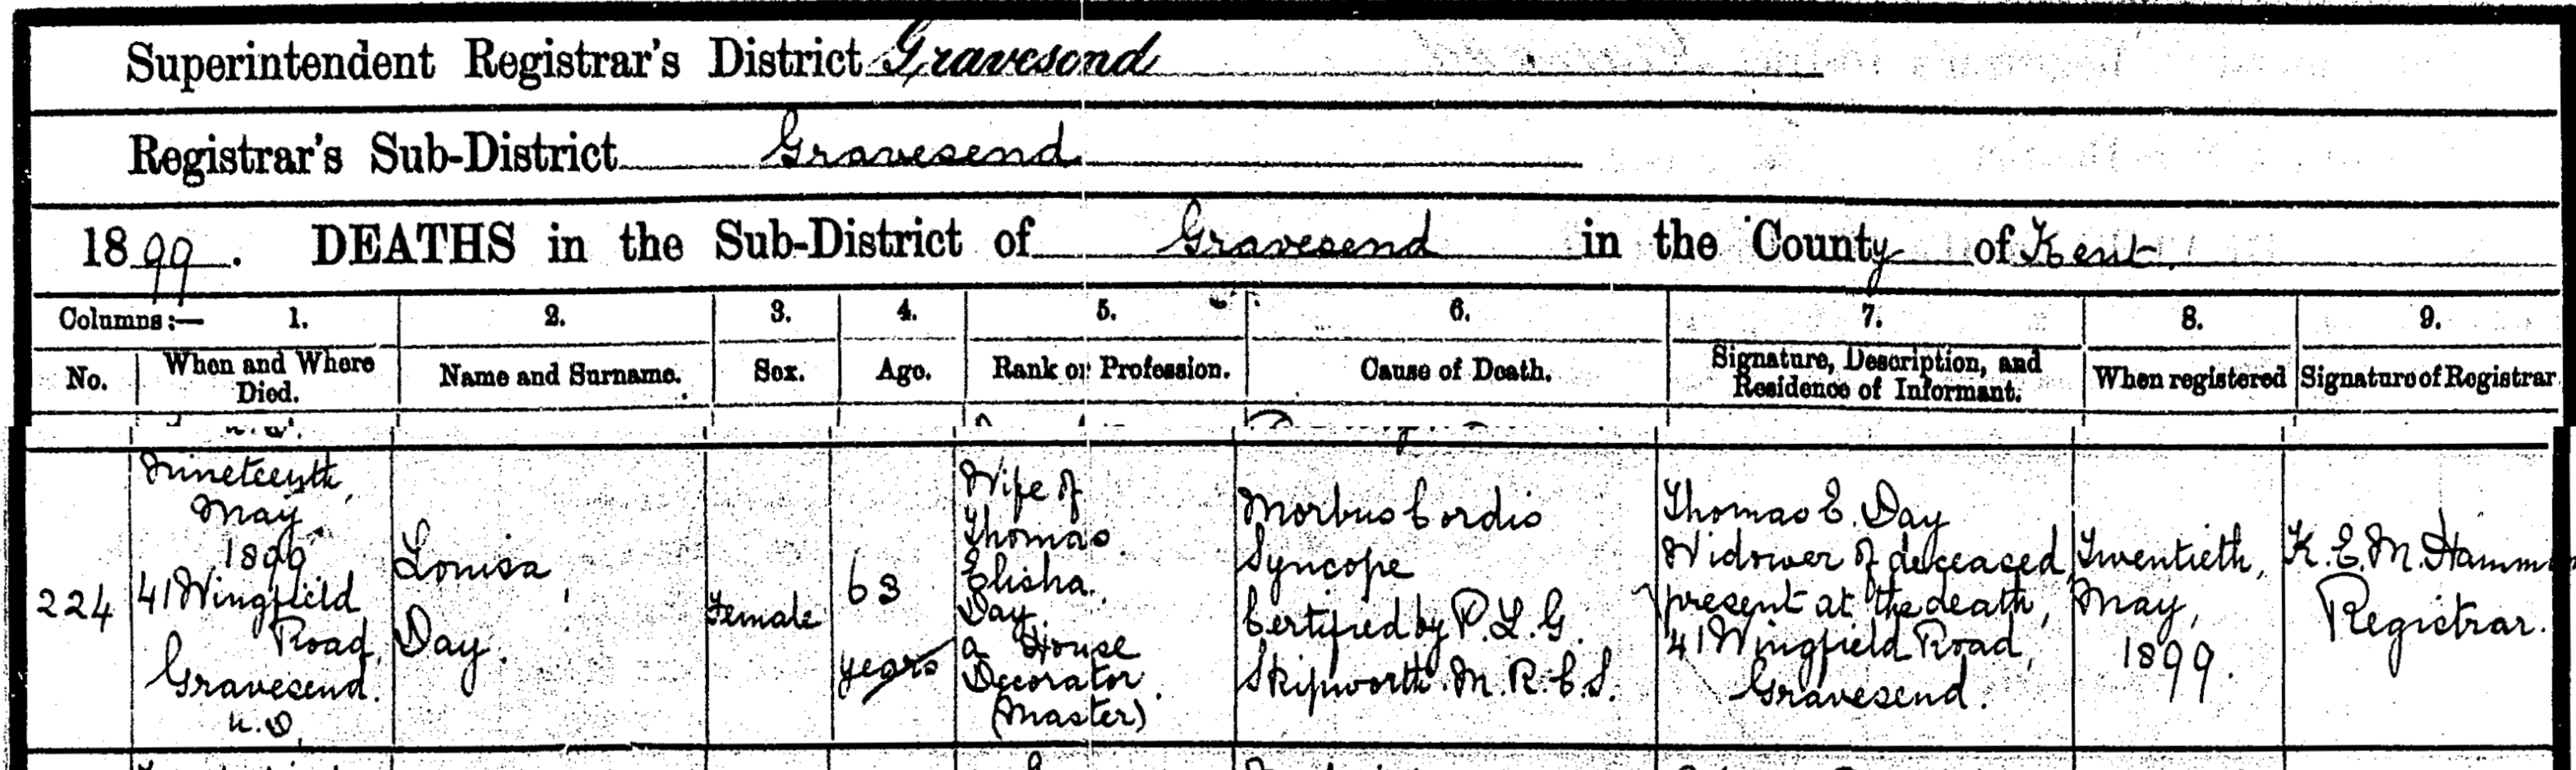 Superintendent Registrar's District Gravesend
Registrar's Sub-District Gravesend
1899. DEATHS in the Sub-District of Gravesend in the County of Kent.
Columns:— 1. 2. 3. 4. 5. 6. 7. 8. 9.
No.
When and Where
Died.
Name and Surname.
Sex.
Age.
Rank or Profession.
Cause of Death.
Signature, Description, and
Residence of Informant.
When registered
Signature of Registrar
224
Nineteenth,
May,
1899
41 Wingfield
Road,
Gravesend.
U.D.
Louisa,
Day.
Female
63
years
Wife of
Thomas
Elisha
Day
a House
Decorator
(Master)
Morbus Cordis
Syncope
Certified by P. L. G.
Skipworth. M. R. C. S.
Thomas E. Day
Widower of deceased,
present at the death,
41 Wingfield Road,
Gravesend.
Twentieth,
May,
1899.
K. E. M. Hamm
Registrar.